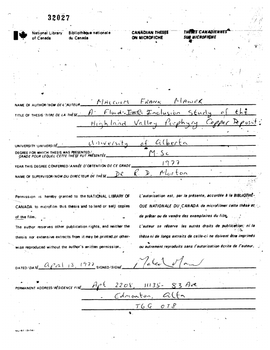 32027
National Library of Canada
Bibliothèque nationale du Canada
CANADIAN THESES ON MICROFICHE
THÈSES CANADIENNES SUR MICROFICHE
NAME OF AUTHOR/NOM DE L'AUTEUR
TITLE OF THESIS/TITRE DE LA THÈSE A Fluid Inclusion Study of the
Highland Valley Porphyry Copper Deposits
UNIVERSITY/UNIVERSITÉ University of Alberta
DEGREE FOR WHICH THESIS WAS PRESENTED/
GRADE POUR LEQUEL CETTE THÈSE FUT PRÉSENTÉE M.Sc
YEAR THIS DEGREE CONFERRED/ANNÉE D'OBTENTION DE CE GRADE 1977
NAME OF SUPERVISOR/NOM DU DIRECTEUR DE THÈSE Dr R. D. Morton
Permission is hereby granted to the NATIONAL LIBRARY OF
CANADA to microfilm this thesis and to lend or sell copies
of the film.
The author reserves other publication rights, and neither the
thesis nor extensive extracts from it may be printed or other-
wise reproduced without the author's written permission.
L'autorisation est, par la présente, accordée à la BIBLIOTHÈ-
QUE NATIONALE DU CANADA de microfilmer cette thèse et
de prêter ou de vendre des exemplaires du film.
L'auteur se réserve les autres droits de publication; ni la
thèse ni de longs extraits de celle-ci ne doivent être imprimés
ou autrement reproduits sans l'autorisation écrite de l'auteur.
DATED/DATÉ April 13, 1977 SIGNED/SIGNÉ
PERMANENT ADDRESS/RÉSIDENCE FIXE Apt 2208, 11135-83 Ave
Edmonton, Alta